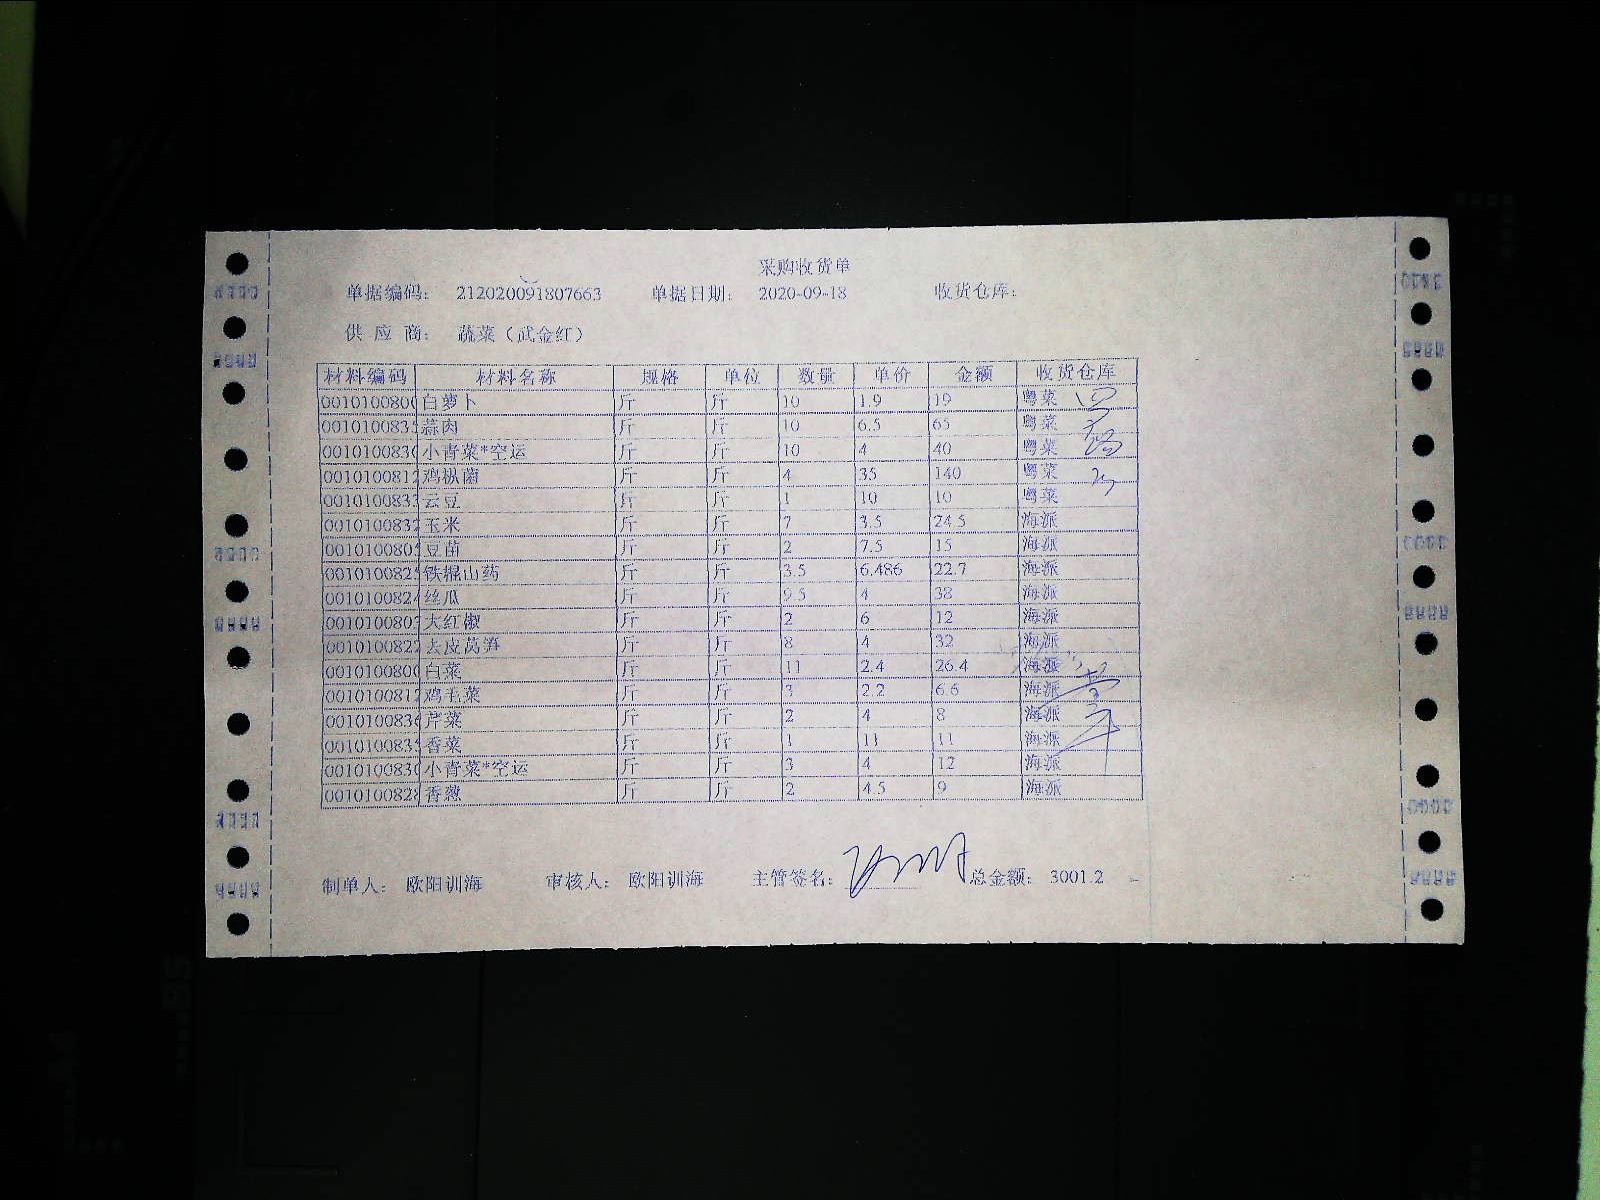 采购收货单
单据编码： 212020091807663 单据日期： 2020-09-18 收货仓库：
供 应 商： 蔬菜（武金红）
材料编码 材料名称 规格 单位 数量 单价 金额 收货仓库
0010100800 白萝卜 斤 斤 10 1.9 19 粤菜
001010083 蒜肉 斤 斤 10 6.5 65 粤菜
001010083 小青菜*空运 斤 斤 10 4 40 粤菜
001010081 鸡枞菌 斤 斤 4 35 140 粤菜
001010083 云豆 斤 斤 1 10 10 粤菜
001010083 玉米 斤 斤 7 3.5 24.5 海派
001010080 豆苗 斤 斤 2 7.5 15 海派
001010082 铁棍山药 斤 斤 3.5 6.486 22.7 海派
001010082 丝瓜 斤 斤 9.5 4 38 海派
001010080 大红椒 斤 斤 2 6 12 海派
001010082 去皮莴笋 斤 斤 8 4 32 海派
001010080 白菜 斤 斤 11 2.4 26.4 海派
001010081 鸡毛菜 斤 斤 3 2.2 6.6 海派
001010083 芹菜 斤 斤 2 4 8 海派
001010083 香菜 斤 斤 1 11 11 海派
001010083 小青菜*空运 斤 斤 3 4 12 海派
001010082 香葱 斤 斤 2 4.5 9 海派
制单人： 欧阳训海 审核人： 欧阳训海 主管签名： 总金额： 3001.2